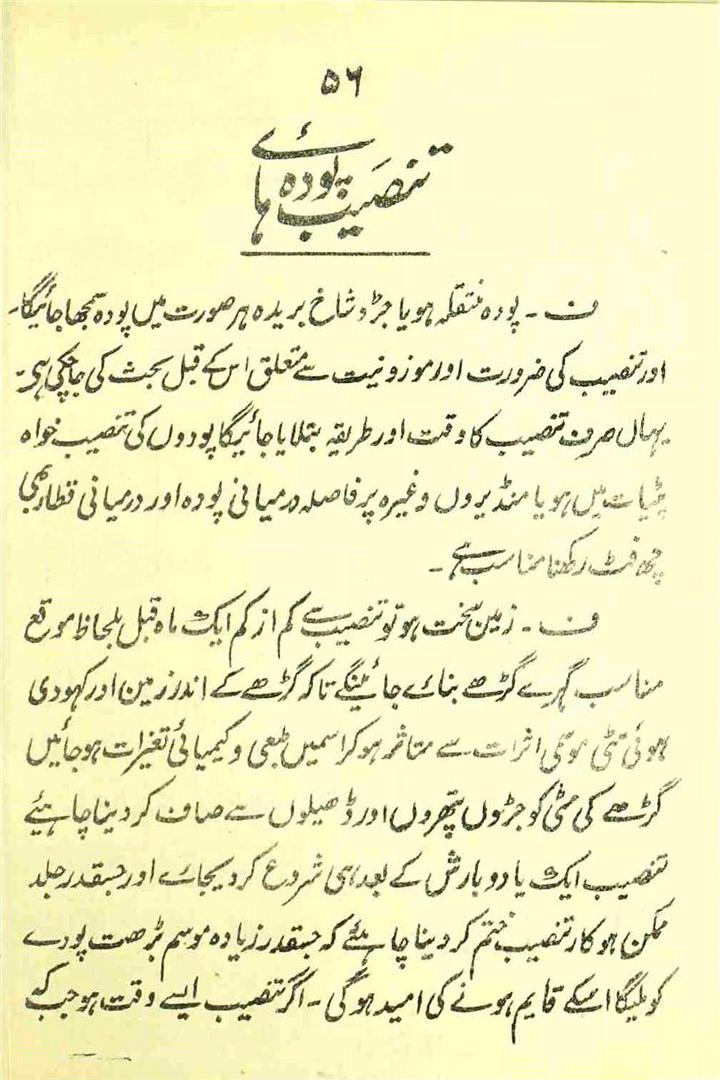 ۵۶
تنصیب پودہ ہائے
ف ۔ پودہ منتقلہ ہو یا جڑ و شاخ بریدہ ہر صورت میں پودہ سمجھا جائیگا۔
اور تنصیب کی ضرورت اور موزونیت سے متعلق اس کے قبل بحث کی جاچکی ہی۔
یہاں صرف تنصیب کا وقت اور طریقہ بتلایا جائیگا پودوں کی تنصیب خواہ
پٹیات میں ہو یا منڈیروں وغیرہ پر فاصلہ درمیانی پودہ اور درمیانی قطار بھی
چھ فٹ رکھنا مناسب ہے ۔
ف ۔ زمین سخت ہو تو تنصیب سے کم از کم ایک ماہ قبل بلحاظ موقع
مناسب گہرے گڑھے بنائے جائینگے تاکہ گڑھے کے اندر زمین اور کہودی
ہوئی مٹی موسمی اثرات سے متاثر ہوکر اسمیں طبعی و کیمیائی تغیرات ہوجائیں
گڑھے کی مٹی کو جڑوں پتھروں اور ڈھیلوں سے صاف کر دینا چاہئیے
تنصیب ایک یا دو بارش کے بعد ہی شروع کردیجائے اور جسقدر جلد
ممکن ہو کار تنصیب ختم کر دینا چاہئیے کہ جسقدر زیادہ موسم بڑھت پودے
کو ملیگا اسکے قایم ہونے کی امید ہوگی ۔ اگر تنصیب ایسے وقت ہو جب کہ